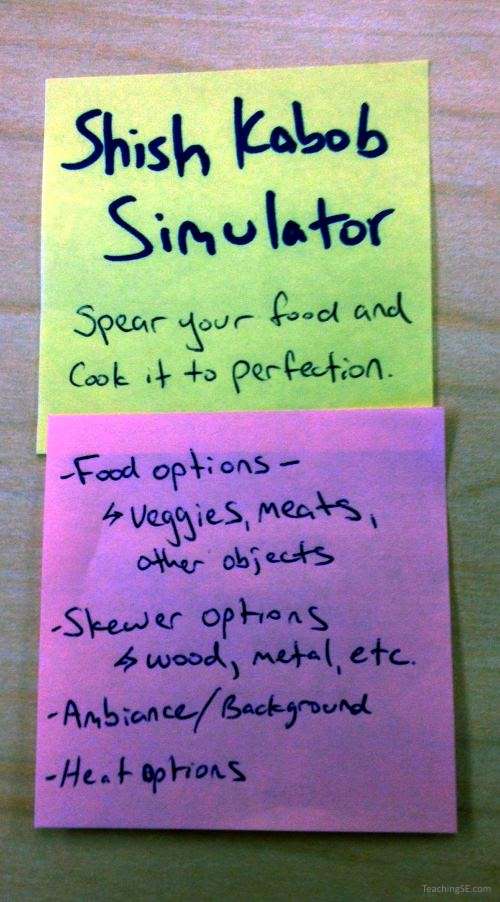 Shish Kabob
Simulator
Spear your food and
Cook it to perfection.
-Food options-
↳ veggies, meats,
other objects
-Skewer options
↳ wood, metal, etc.
-Ambiance/Background
-Heat options
TeachingSE.com